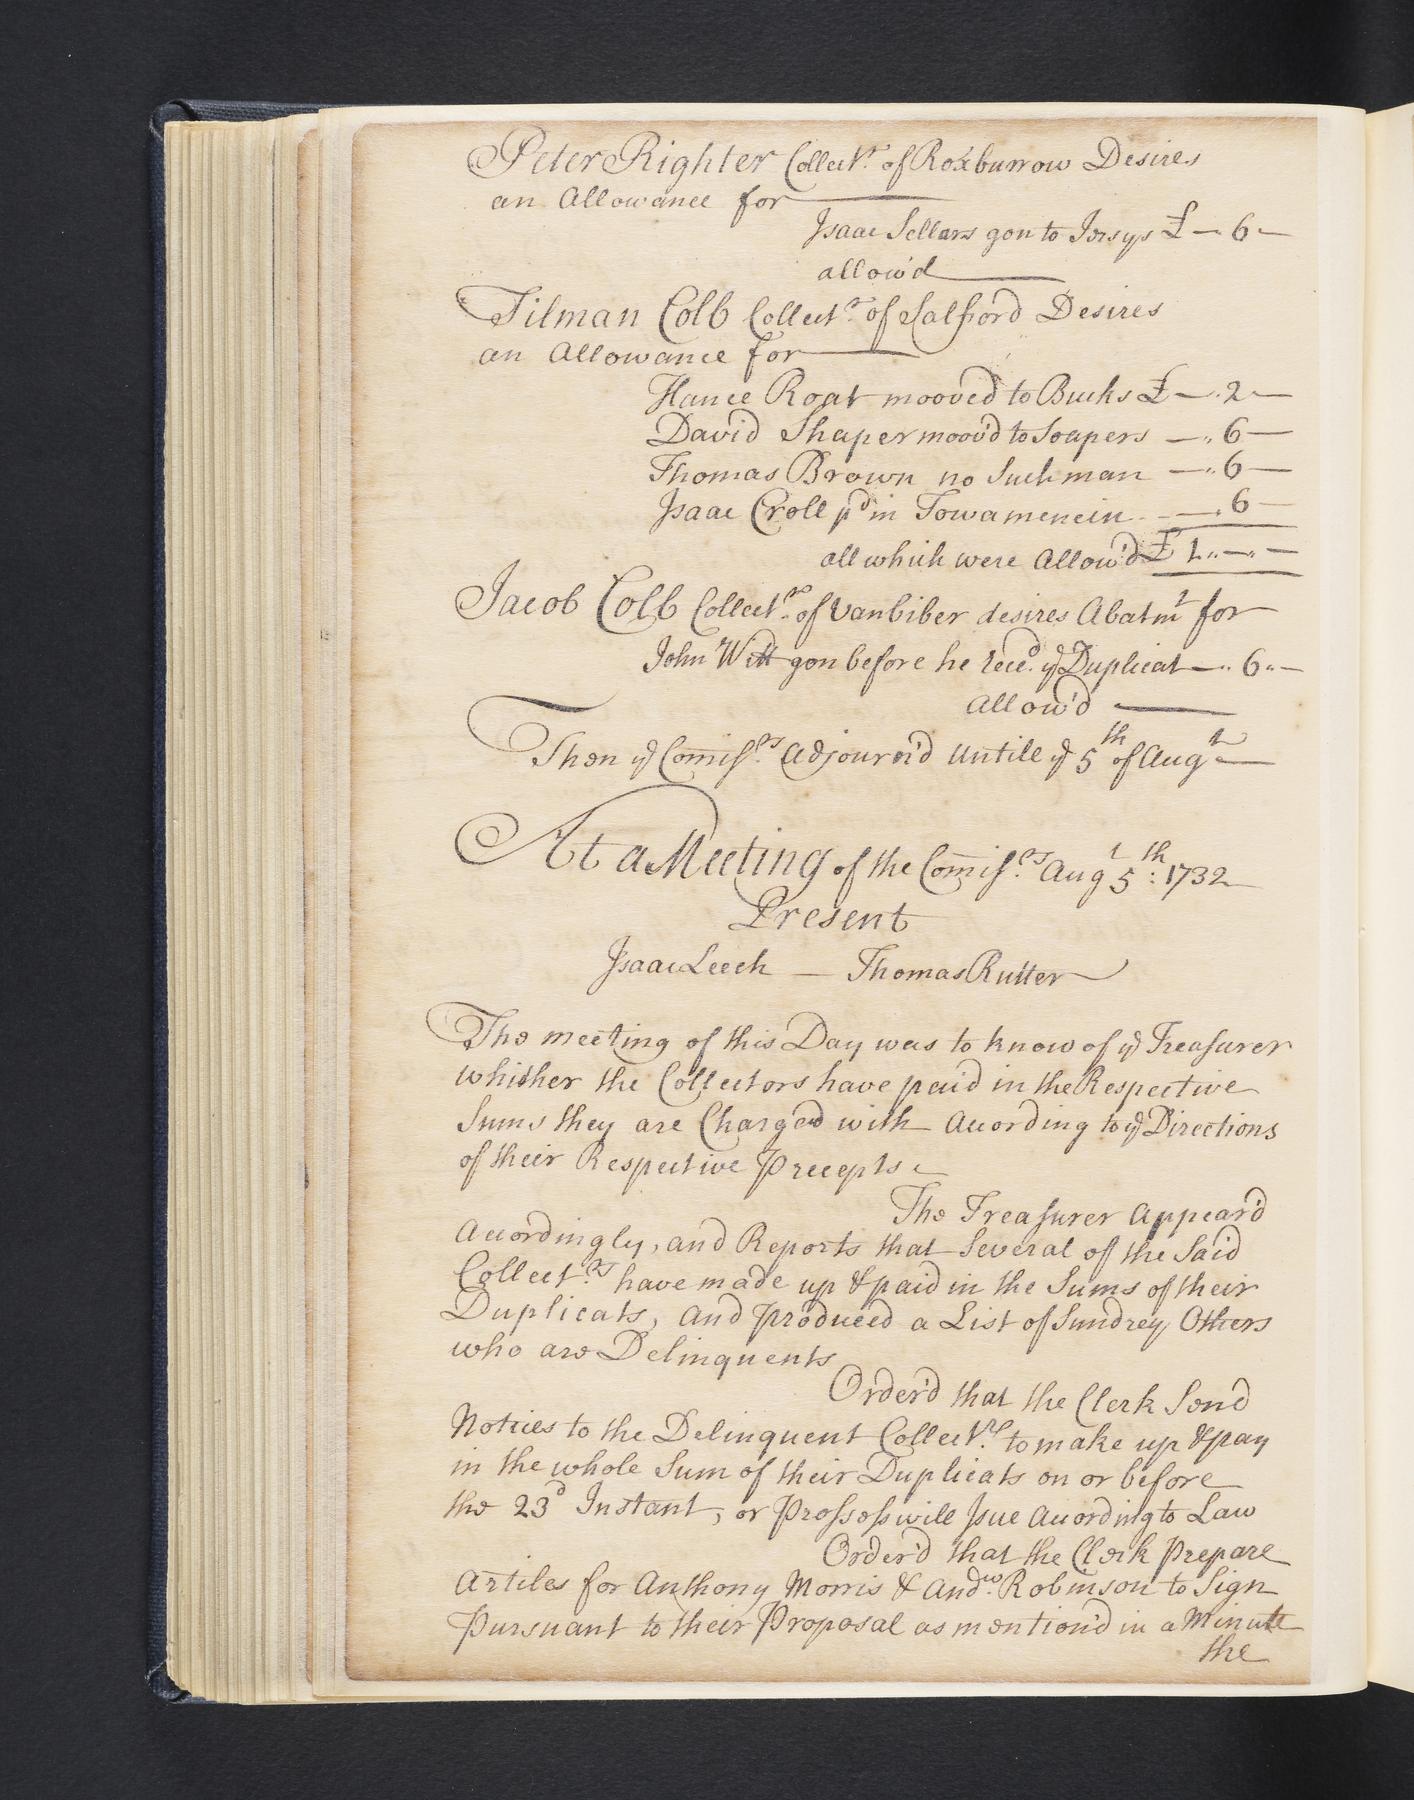 Peter Righter Collect.r of Roxburrow Desires
an Allowance for
Isaac Sellars gon to Jersys £ — 6 —
allow'd
Tilman Colb Collect.r of Salford Desires
an Allowance for
Hance Roat mooved to Bucks £ — 2 —
David Shaper moov'd to Soapers — „ 6 —
Thomas Brown no Such man — „ 6 —
Isaac Croll pd in Towamencin — „ 6 —
all which were Allow'd £ 1 „ — „ —
Jacob Colb Collect.r of Vanbiber desires Abatmt for
John Witt gon before he Recd ye Duplicat — „ 6 „ —
Allow'd
Then ye Comiss.rs Adjourn'd Untill ye 5th of Augt
At a Meeting of the Comiss.rs Augt 5th: 1732
Present
Isaac Leech — Thomas Rutter
The meeting of this Day was to know of ye Treasurer
whither the Collectors have paid in the Respective
Sums they are Charged with Acording to ye Directions
of their Respective Precepts
The Treasurer Appear'd
Acordingly, and Reports that Several of the Said
Collect.rs have made up & paid in the Sums of their
Duplicats, and produced a List of Sundrey Others
who are Delinquents
Order'd that the Clerk Send
Notties to the Delinquent Collect.rs to make up & pay
in the whole Sum of their Duplicats on or before
the 23d Instant, or Prossess will Issue Acording to Law
Order'd that the Clerk Prepare
Artiles for Anthony Morris & Andw. Robinson to Sign
Pursuant to their Proposal as mention'd in a Minute
the